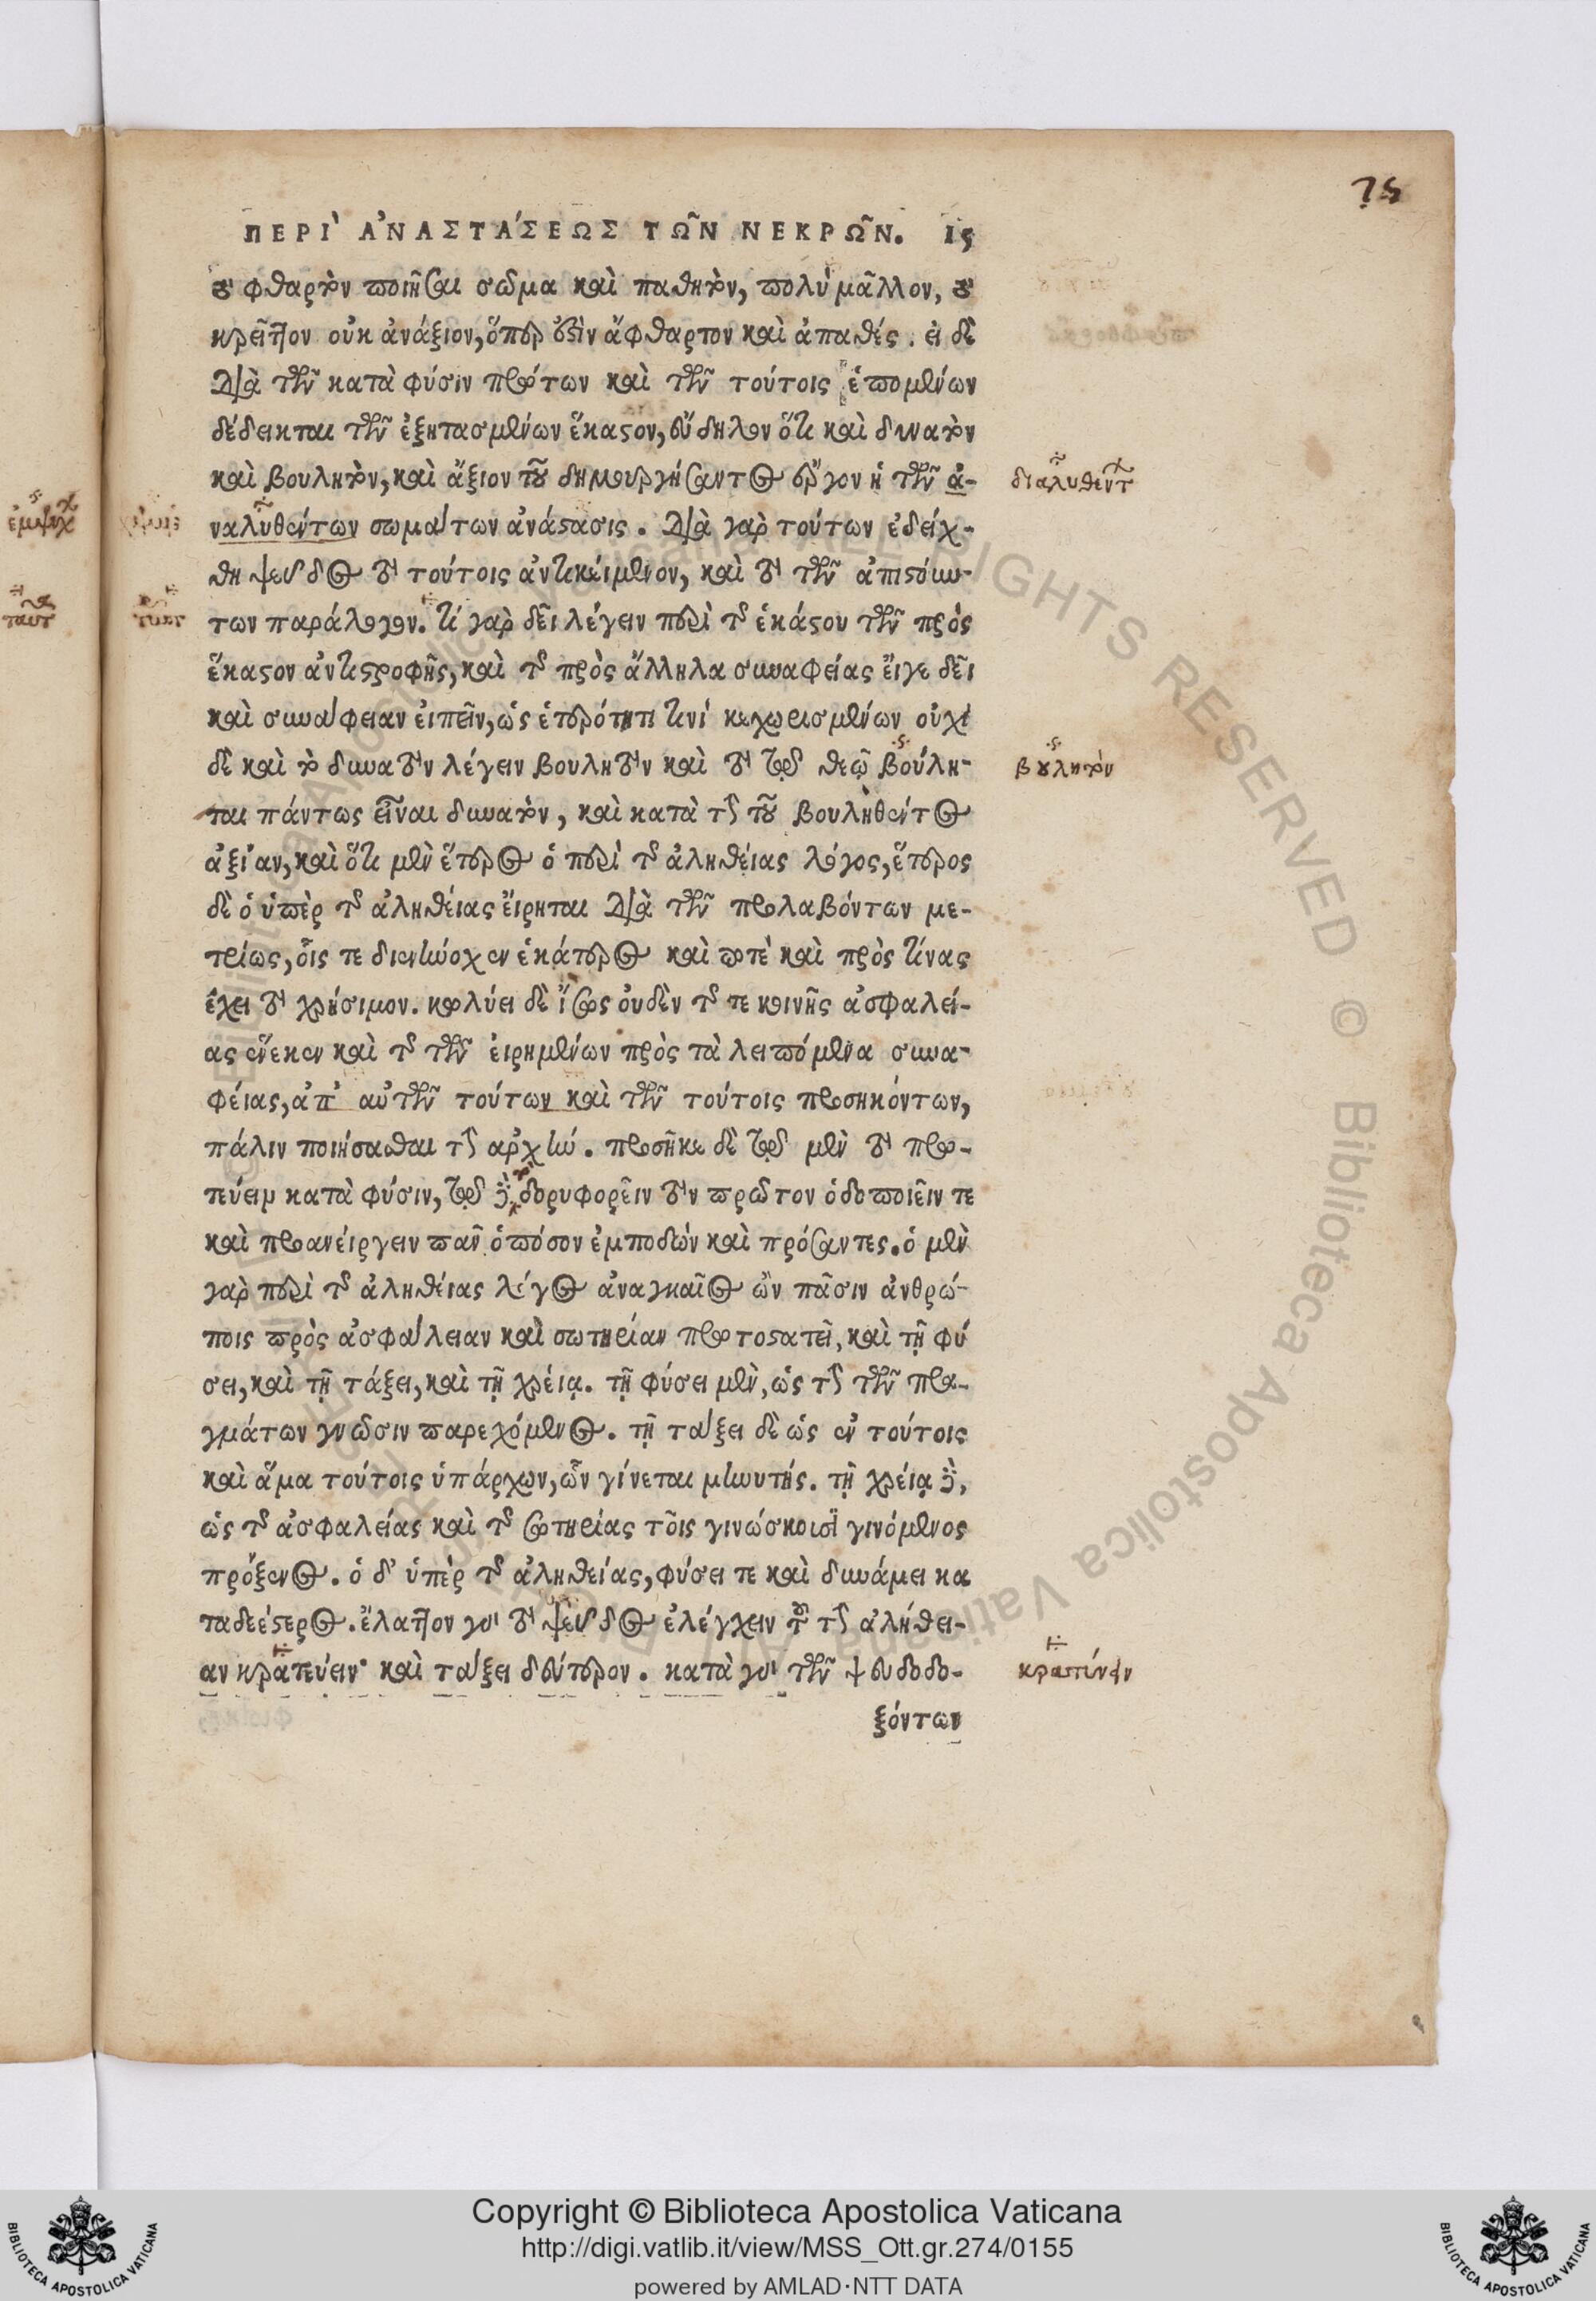 75
ΠΕΡΙ` ἈΝΑΣΤΑ´ΣΕΩΣ ΤΩ͂Ν ΝΕΚΡΩ͂Ν. ις
τὸ φθαρτὸν ποιῆσαι σῶμα καὶ παθητὸν, πολὺ μᾶλλον, τὸ
κρεῖττον οὐκ ἀνάξιον, ὅπερ ἐστὶν ἄφθαρτον καὶ ἀπαθές. εἰ δὲ
διὰ τῶν κατὰ φύσιν πρώτων καὶ τῶν τούτοις ἑπομένων
δέδεικται τῶν ἐξητασμένων ἕκαστον, εὔδηλον ὅτι καὶ δυνατὸν
καὶ βουλητὸν, καὶ ἄξιον τοῦ δημιουργήσαντος ἔργον ἡ τῶν ἀ-
διαλυθέντ
ναλυθέντων σωμάτων ἀνάστασις. διὰ γὰρ τούτων ἐδείχ-
ἐμψυχ
θη ψεῦδος τὸ τούτοις ἀντικείμενον, καὶ τὸ τῶν ἀπιστούν-
των παράλογον. τί γὰρ δεῖ λέγειν περὶ τῆς ἑκάστου τῶν πρὸς
ταυτ
ἕκαστον ἀντιστροφῆς, καὶ τῆς πρὸς ἄλληλα συναφείας εἴγε δεῖ
καὶ συνάφειαν εἰπεῖν, ὡς ἑτερότητι τινὶ κεχωρισμένων οὐχὶ
δὲ καὶ τὸ δυνατὸν λέγειν βουλητὸν καὶ τὸ τῷ θεῷ βούλη-
βουλητὸν
ται πάντως εἶναι δυνατὸν, καὶ κατὰ τὴν τοῦ βουληθέντος
ἀξίαν, καὶ ὅτι μὲν ἕτερος ὁ περὶ τῆς ἀληθείας λόγος, ἕτερος
δὲ ὁ ὑπὲρ τῆς ἀληθείας εἴρηται διὰ τῶν προλαβόντων με-
τρίως, οἷς τε διενήνοχεν ἑκάτερος καὶ ποτὲ καὶ πρὸς τίνας
ἔχει τὸ χρήσιμον. κωλύει δὲ ἴσως οὐδὲν τῆς τε κοινῆς ἀσφαλεί-
ας ἕνεκεν καὶ τῆς τῶν εἰρημένων πρὸς τὰ λειπόμενα συνα-
φείας, ἀπ' αὐτῶν τούτων καὶ τῶν τούτοις προσηκόντων,
πάλιν ποιήσασθαι τὴν ἀρχήν. προσῆκε δὲ τῷ μὲν τὸ πρω-
τεύειν κατὰ φύσιν, τῷ δὲ δορυφορεῖν τὸν πρῶτον ὁδοποιεῖν τε
καὶ προανείργειν πᾶν ὁπόσον ἐμποδὼν καὶ πρόσαντες. ὁ μὲν
γὰρ περὶ τῆς ἀληθείας λέγος ἀναγκαῖος ὢν πᾶσιν ἀνθρώ-
ποις πρὸς ἀσφάλειαν καὶ σωτηρίαν πρωτοστατεῖ, καὶ τῇ φύ
σει, καὶ τῇ τάξει, καὶ τῇ χρείᾳ. τῇ φύσει μὲν, ὡς τὴν τῶν πρα-
γμάτων γνῶσιν παρεχόμενος. τῇ τάξει δὲ ὡς ἐν τούτοις
καὶ ἅμα τούτοις ὑπάρχων, ὧν γίνεται μηνυτής. τῇ χρείᾳ δὲ,
ὡς τῆς ἀσφαλείας καὶ τῆς σωτηρίας τοῖς γινώσκουσι γινόμενος
πρόξενος. ὁ δ' ὑπὲρ τῆς ἀληθείας, φύσει τε καὶ δυνάμει κα
ταδεέστερος. ἔλαττον γὰρ τὸ ψεῦδος ἐλέγχειν τοῦ τὴν ἀλήθει-
αν κρατεύειν· καὶ τάξει δεύτερον. κατὰ γὰρ τῶν ψευδοδο-
κρατύνειν
ξόντων
Copyright © Biblioteca Apostolica Vaticana
http://digi.vatlib.it/view/MSS_Ott.gr.274/0155
powered by AMLAD·NTT DATA